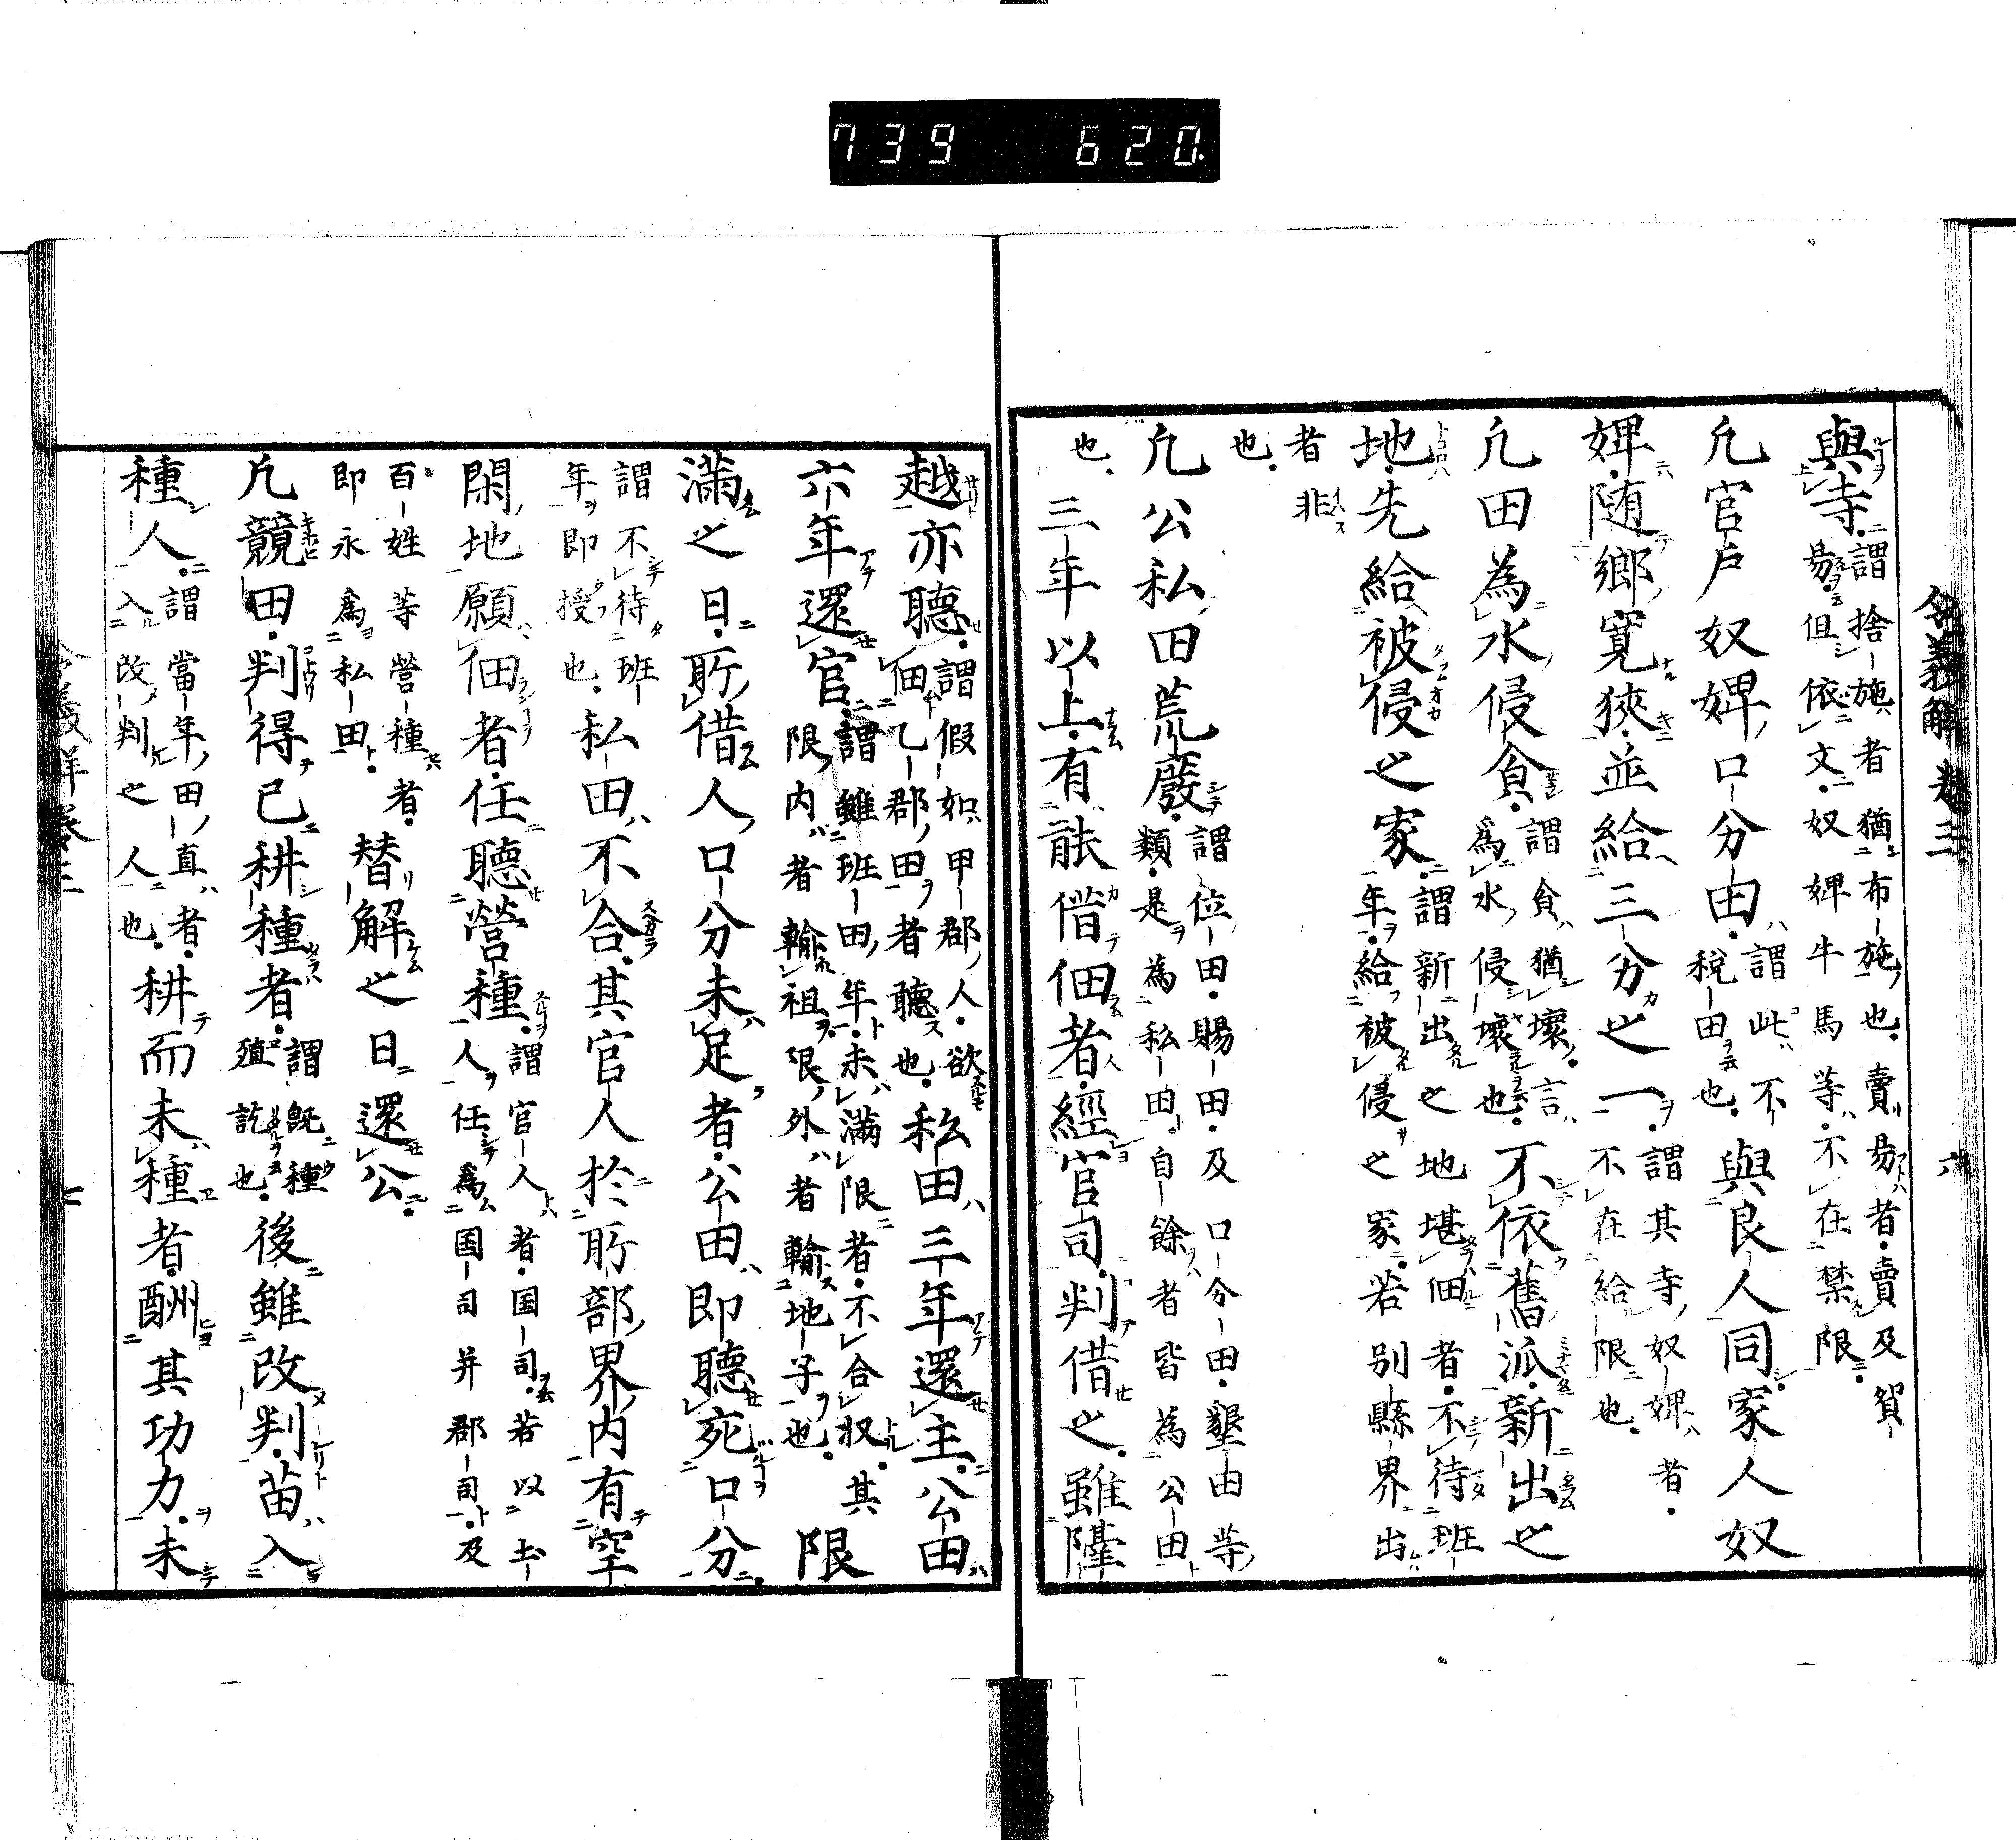 739 620
令義解 卷三 六
與寺。謂捨施者猶布施也。賣易者。賣及貿易。但依文。奴婢牛馬等。不在禁限。
凢官戸奴婢口分田。謂此不税田也。與良人同。家人奴
婢。随郷寛狹。並給三分之一。謂其寺奴婢者。不在給限也。
凢田為水侵食。謂食猶壞。言為水侵壞也。不依舊派。新出之
地。先給被侵之家。謂新出之地堪佃者。不待班年。給被侵之家。若別縣界出
者非也。
凢公私田荒廢。謂位田。賜田。及口分田。墾田等類。是為私田。自餘者皆為公田
也。三年以上。有能借佃者。經官司。判借之。雖隔
越亦聽。謂假如甲郡人。欲佃乙郡田者聽也。私田三年還主。公田
六年還官。謂雖班田年。未滿限者。不合収。其限内者輸祖。限外者輸地子也。限
滿之日。所借人口分未足者。公田即聽死口分。
謂不待班年即授也。私田不合。其官人於所部界内有空
閑地願佃者。任聽營種。謂官人者。国司。若以土人任為国司并郡司。及
百姓等營種者。即永為私田。替解之日還公。
凢競田。判得已耕種者。謂既種殖訖也。後雖改判。苗入
種人。謂當年田真者。入改判之人也。耕而未種者。酬其功力。未
七